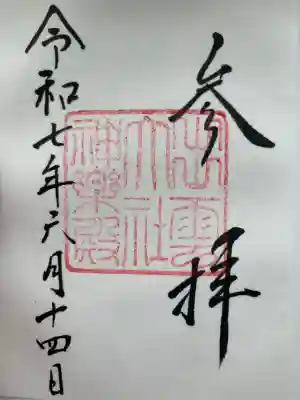 参拝
出雲
大社
神楽殿
令和七年六月十四日